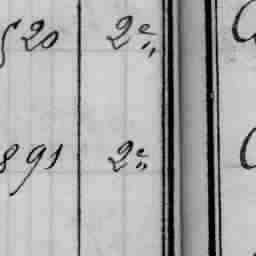 520 2e„
891 2e„